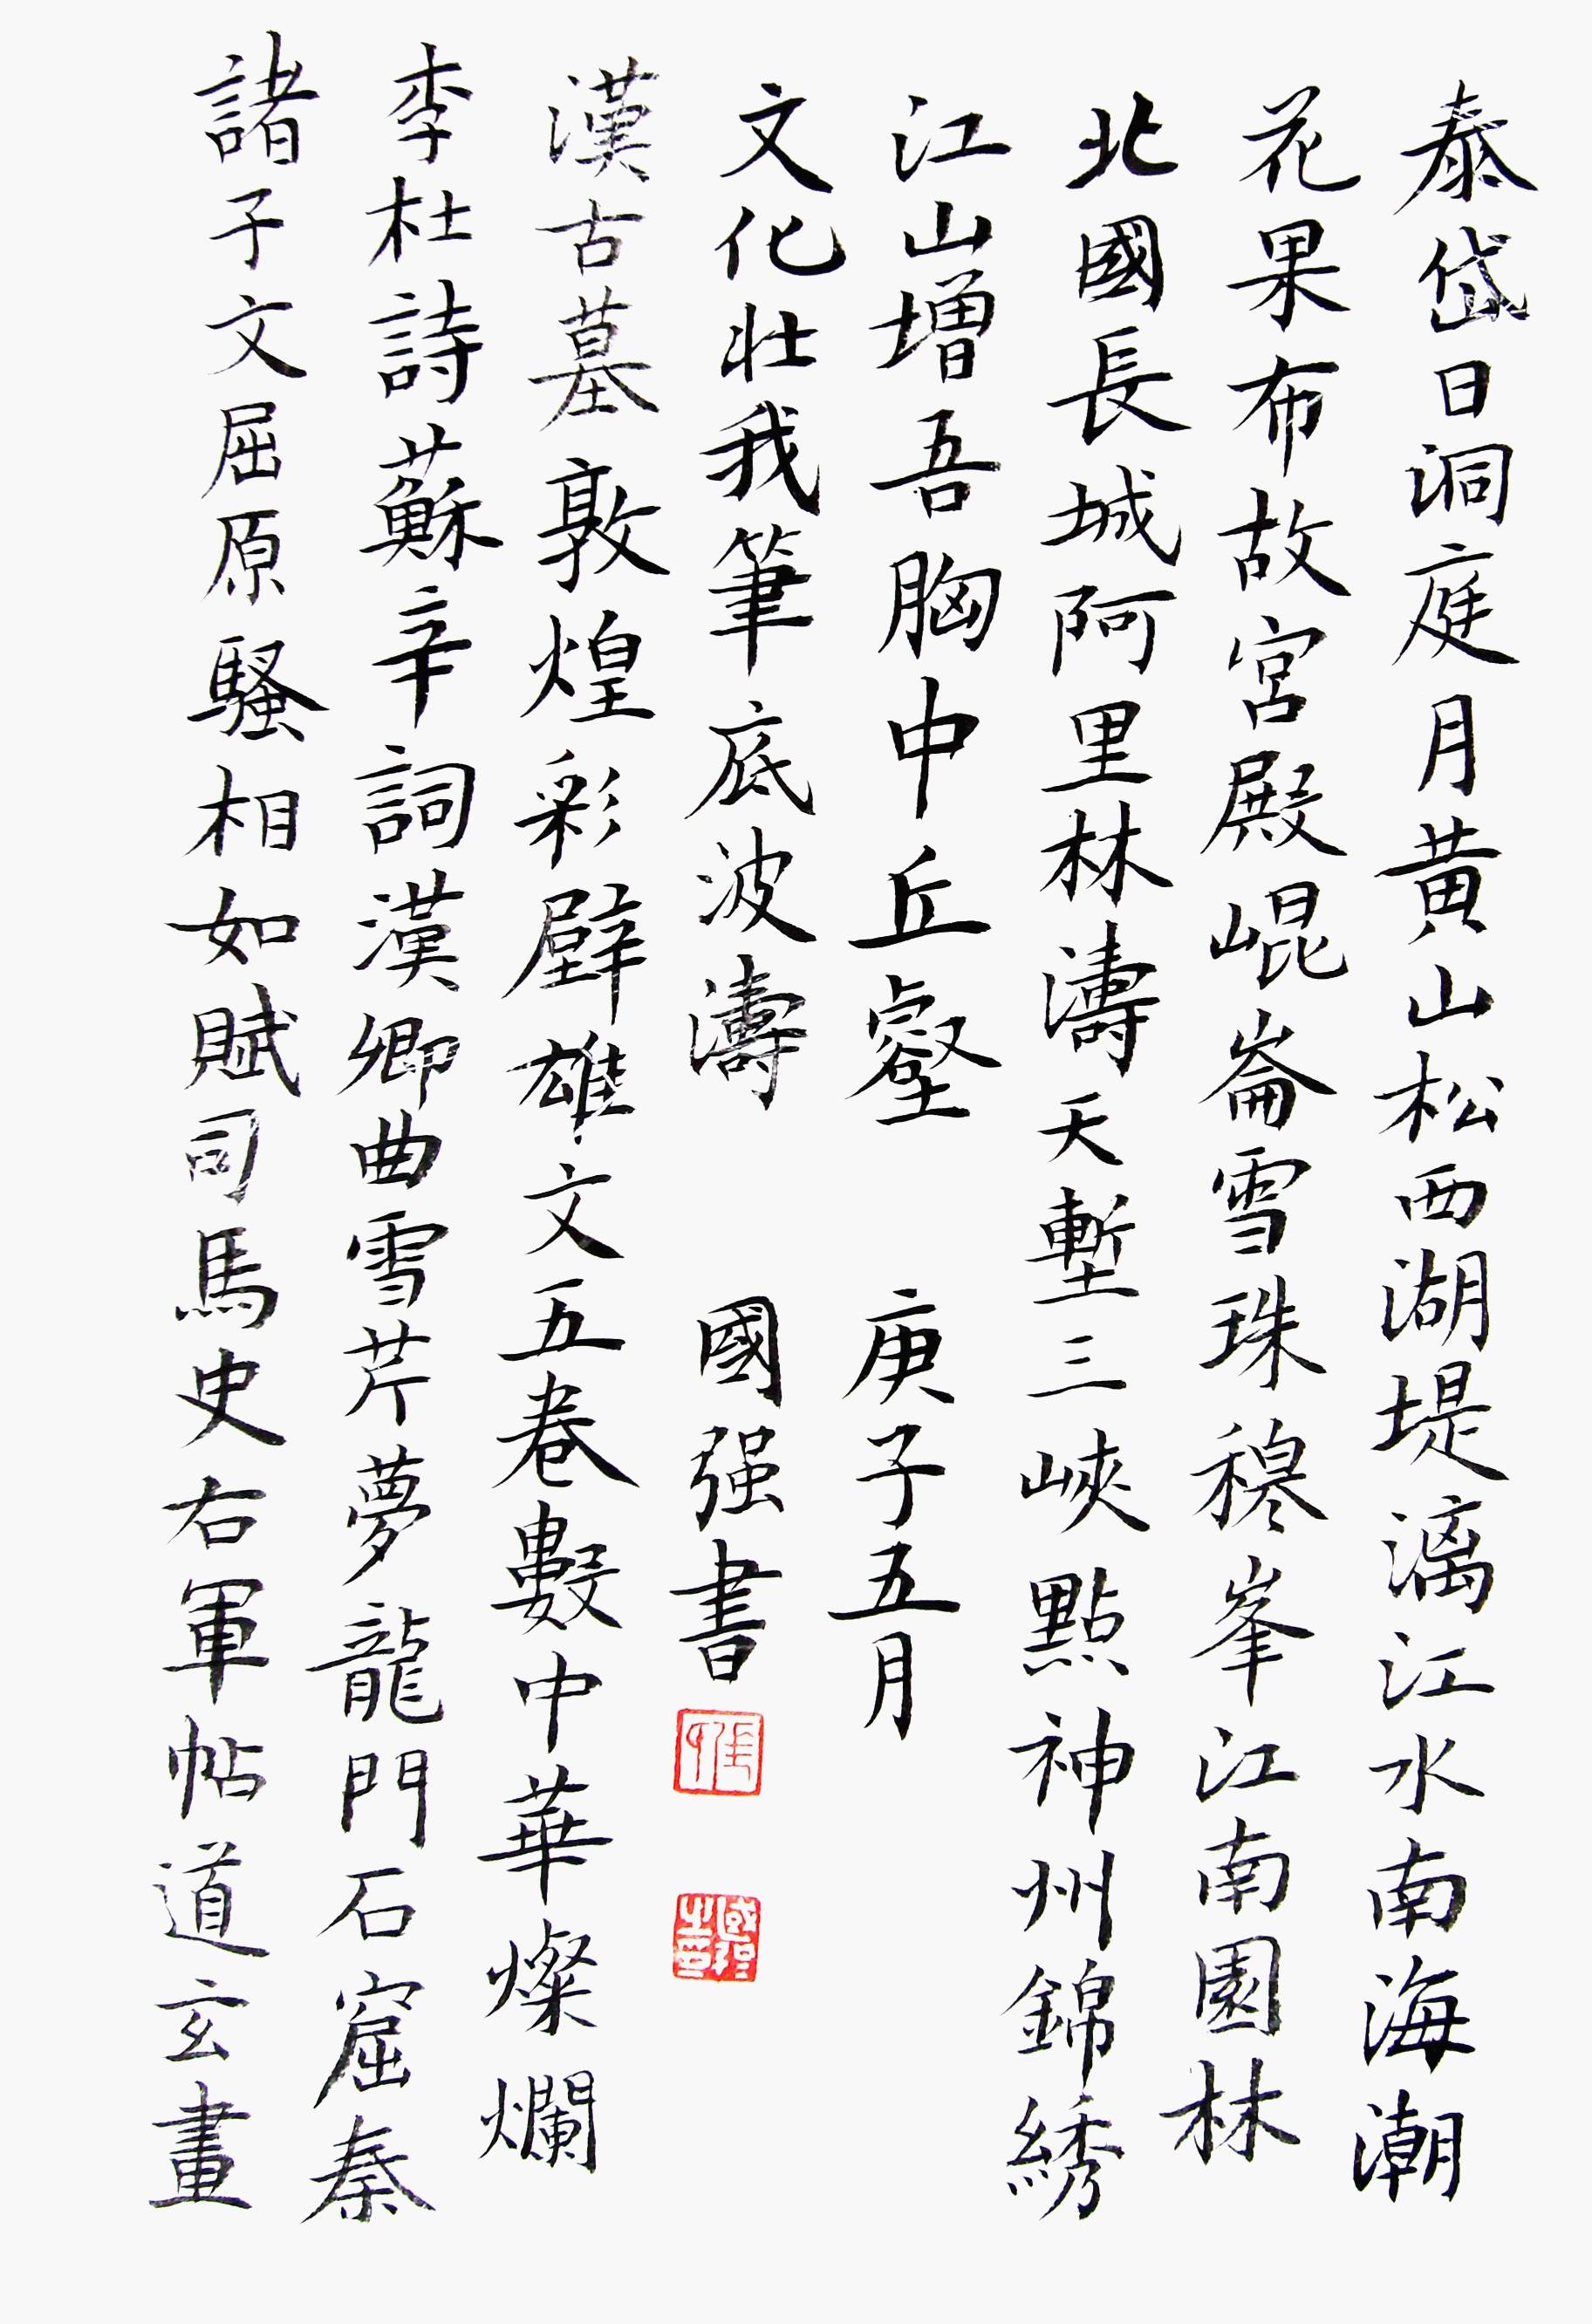 泰岱日洞庭月黄山松西湖堤漓江水南海潮
花果布故宮殿崐崙雪珠穆峯江南園林
北國長城阿里林濤天塹三峽點神州錦綉
江山增吾胸中丘壑 庚子五月
諸子文屈原騷相如賦司馬史右軍帖道玄畫
李杜詩蘇辛詞漢卿曲雪芹夢龍門石窟秦
漢古墓敦煌彩壁雄文五卷數中華燦爛
文化壯我筆底波濤 國强書
張
國强之印